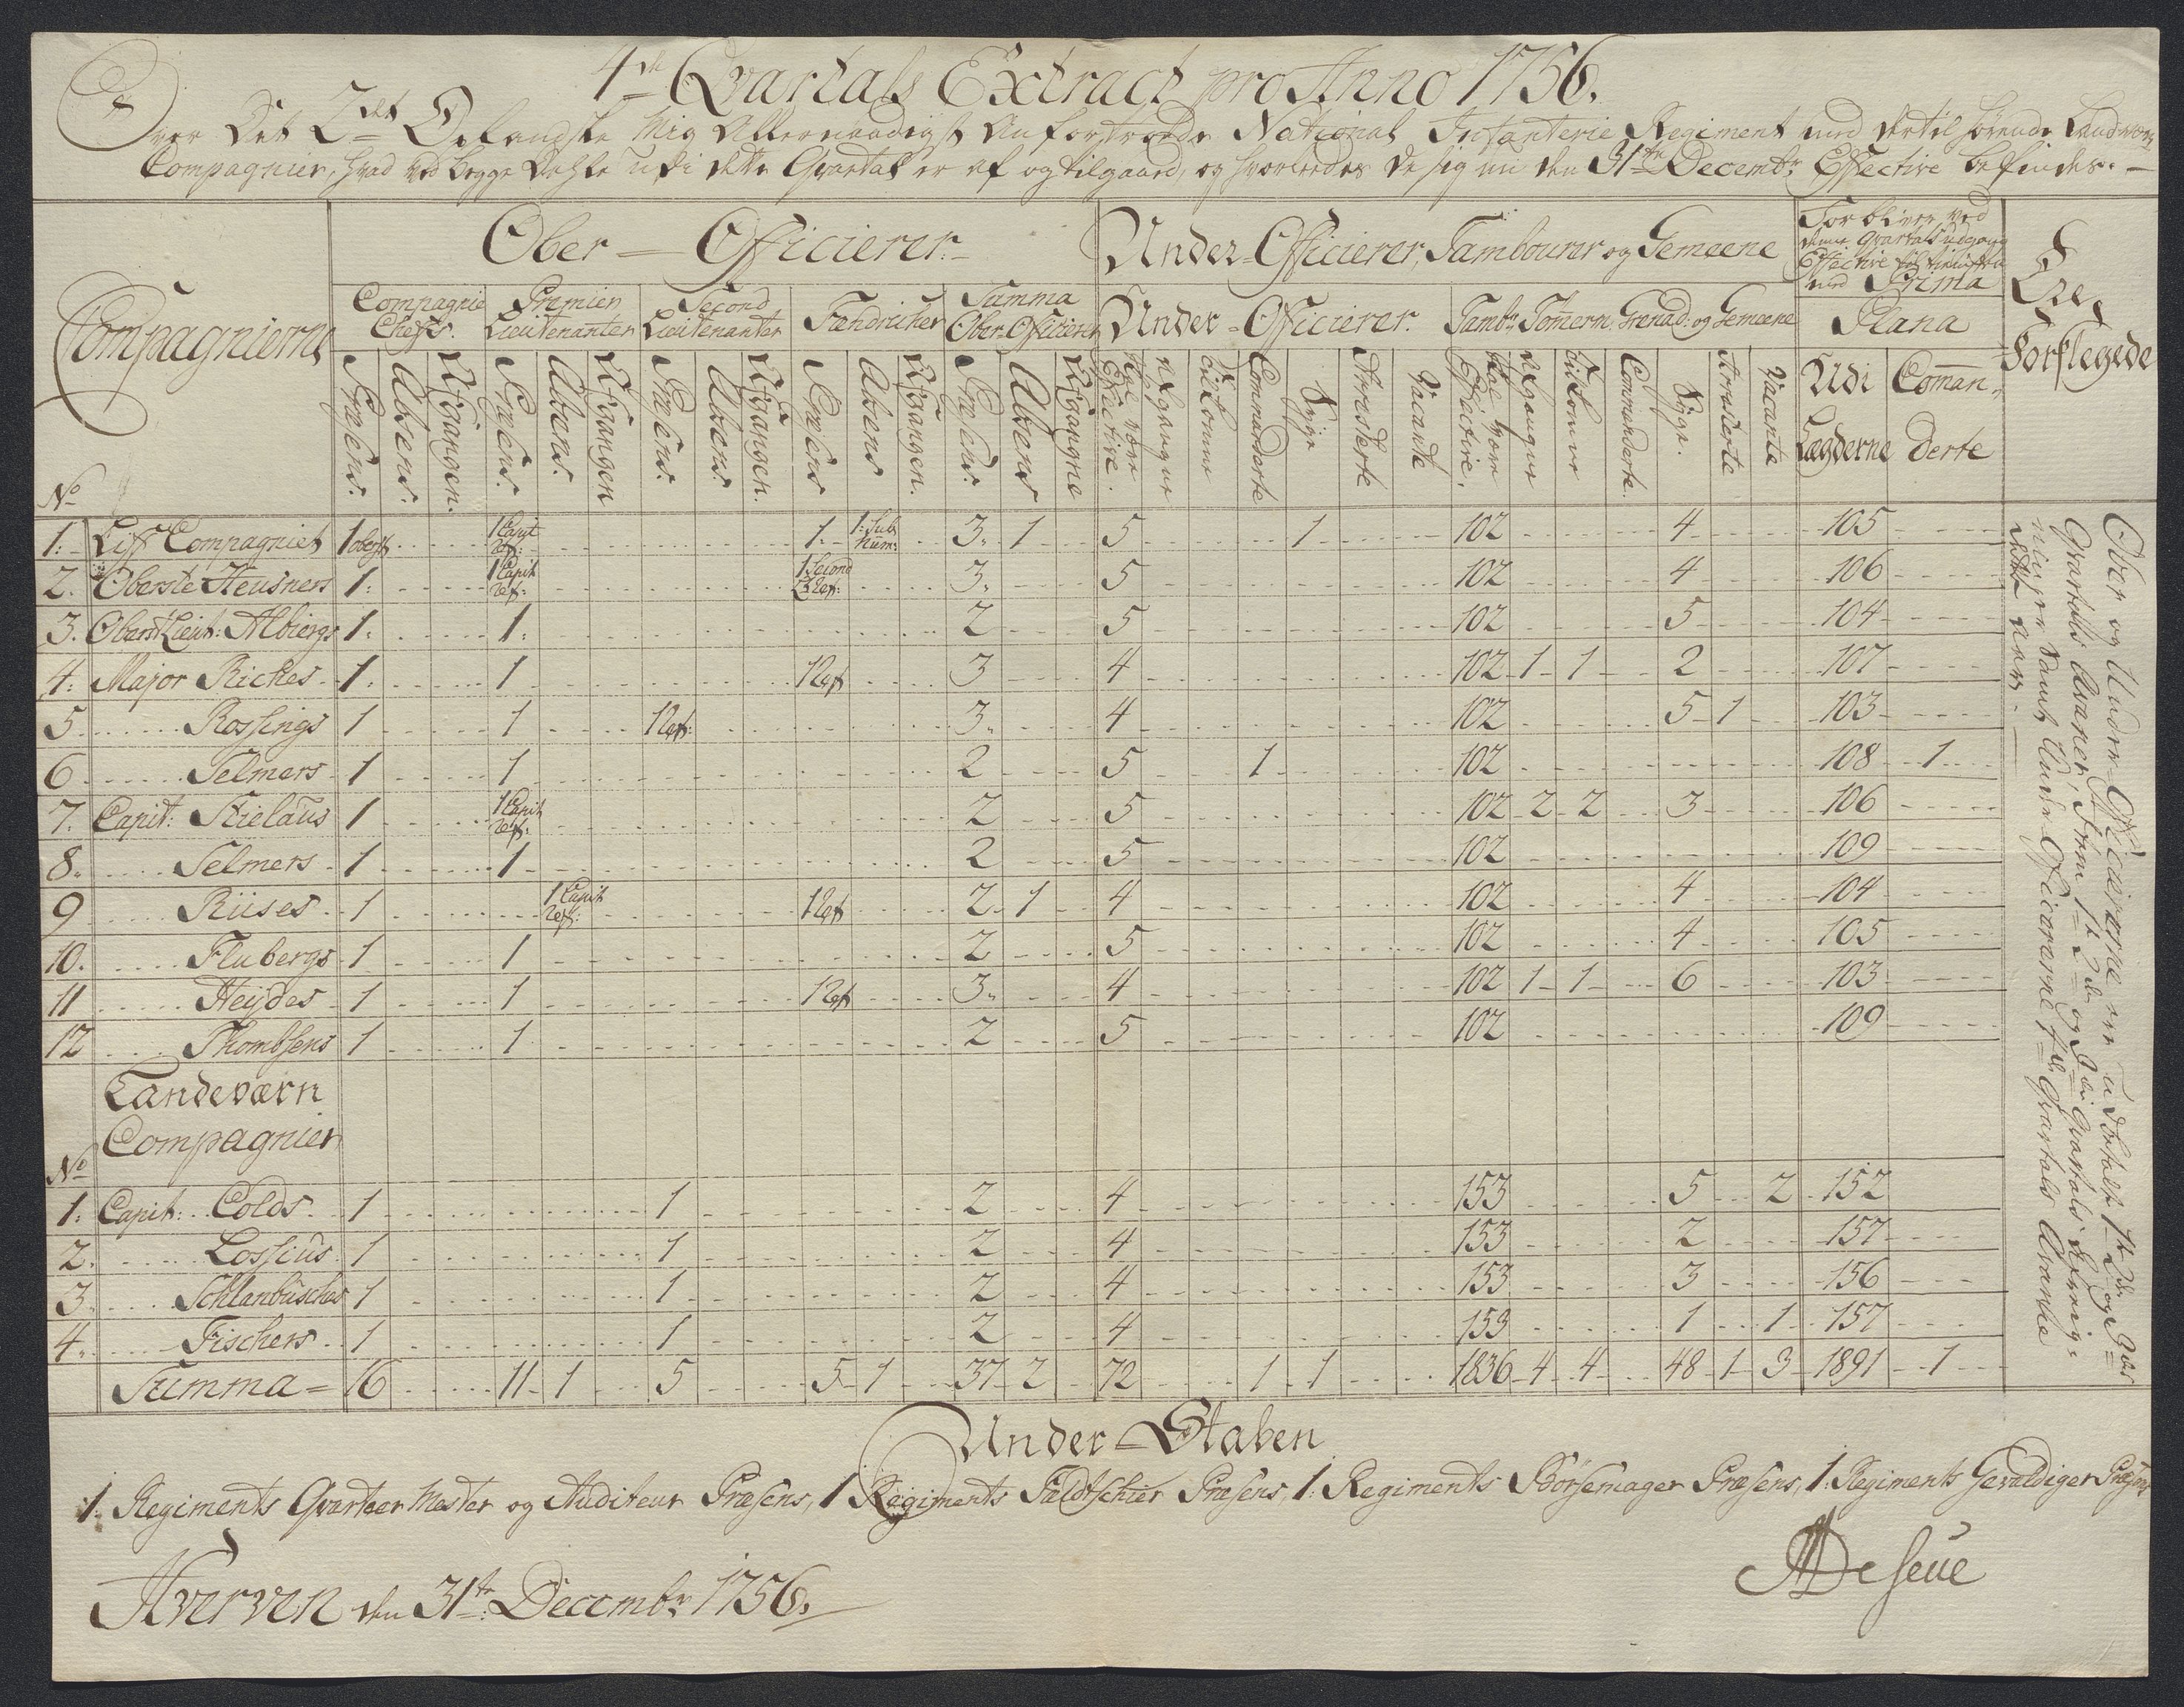 4de Qvartals Extract pro Anno 1756.
Over Det 2det Oplandske Mig Allernaadigst Anfortroede National Infanterie Regiment med dertil hørende Landværn
Compagnier, hvad ved begge Deele udi dette Qvartal er af og tilgaaed, og hvorledes de sig nu den 31te Decembr: Effective befindes.
Compagnierne
Ober-Officierer.
Under-Officierer, Tambourer og Gemeene
Forbliver ved
denne Qvartals udgang
Effective
med Prima
Plana
Er
Forflegede
Compagnie
Chefs.
Premier
Lieutenanter
Second
Lieutenanter
Fændricher
Summa
Ober-Officierer
Under-Officierer.
Tambr: Tømern Grenad: og Gemeene
Udi
Lægderne
Coman-
derte
Præsens. Absens. Afgangen. Præsens. Absens. Afgangen Præsens. Absens. Afgangen. Præsens Absens Afgangen. Præsens. Absens Afgangne
Skal være Effective. Afganget Tilkomne Commanderte Syge Arresterte Vacante
Skal være Effective. Afganget Tilkomne Commanderte. Syge. Arresterte Vacante
No
1. Liff Compagniet 1 Oberst 1 Capt ref: 1. 1. 3. 1 5 1 102 4 105
2. Oberste Heusners 1. 1 Capit ref: 1 Second 3. 5 102 4 106
3. Oberst Lieut: Albiergs 1. 1. 2 5 102 5 104
4. Major Riches 1. 1 1 ref 3 4 102 1 1 2 107
5 Rossings 1 1 1 ref: 3. 4 102 5 1 103
6 Selmers 1 1 2 5 1 102 108 1
7. Capit: Stielaus 1 1 Capit ref: 2 5 102 2 2 3 106
8. Selmers 1 1 2 5 102 109
9 Riises 1 1 Capit ref: 1 ref 2 1 4 102 4 104
10. Flubergs 1 1 2 5 102 4 105
11 Heydes 1 1 1 ref 3. 4 102 1 1 6 103
12 Thombsens 1 1 2 5 102 109
Landeværn
Compagnier
No
1. Capit: Colds 1 1 2 4 153 5 2 152
2. Lossius 1 1 2 4 153 2 157
3. Schlanbusches 1 1 2 4 153 3 156
4. Fischers 1 1 2 4 153 1 1 157
Summa = 16 11 1 5 5 1 37 2 72 1 1 1836 4 4 48 1 3 1891 1
Over og Under-Officiererne ere udbetalt 1te 2de og 3die
Qvartals Avancer, 1te 2de og 3die Qvartals
samt Under Officererne 4de Qvartals Avance
Under-Staben
1. Regiments Qvarteer Mester og Auditeur Præsens, 1 Regiments Faldtschier Præsens, 1. Regiments Børsemager Præsens, 1. Regiments Gevaldiger Præsens
Hverven den 31te Decembr 1756.
De Seue